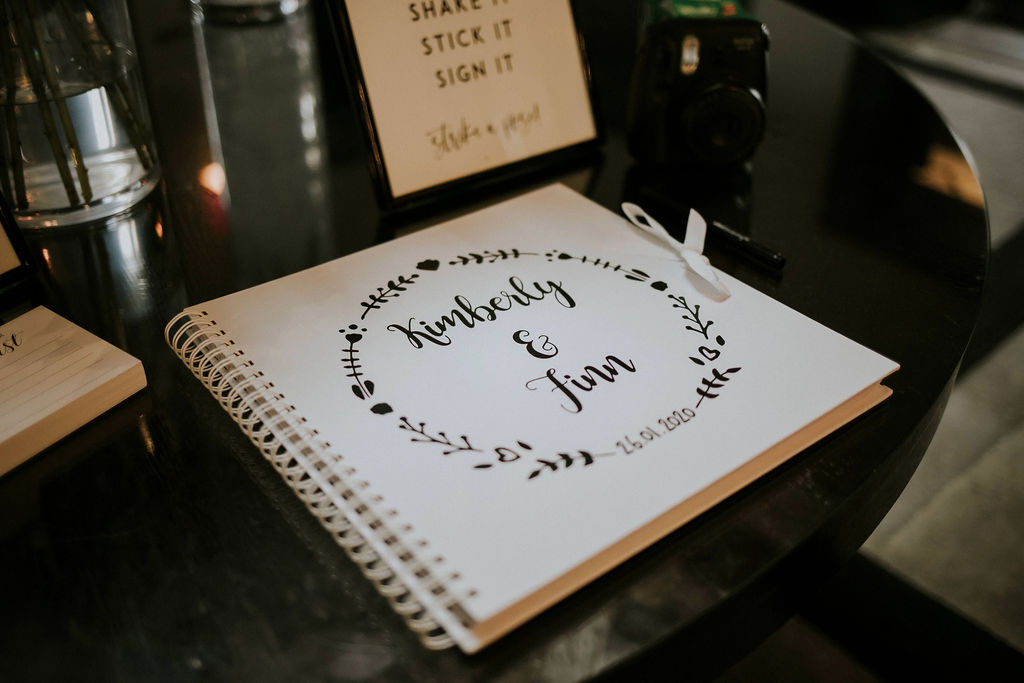 SHAKE IT
STICK IT
SIGN IT
strike a pose!
Kimberly
&
Finn
26.01.2020